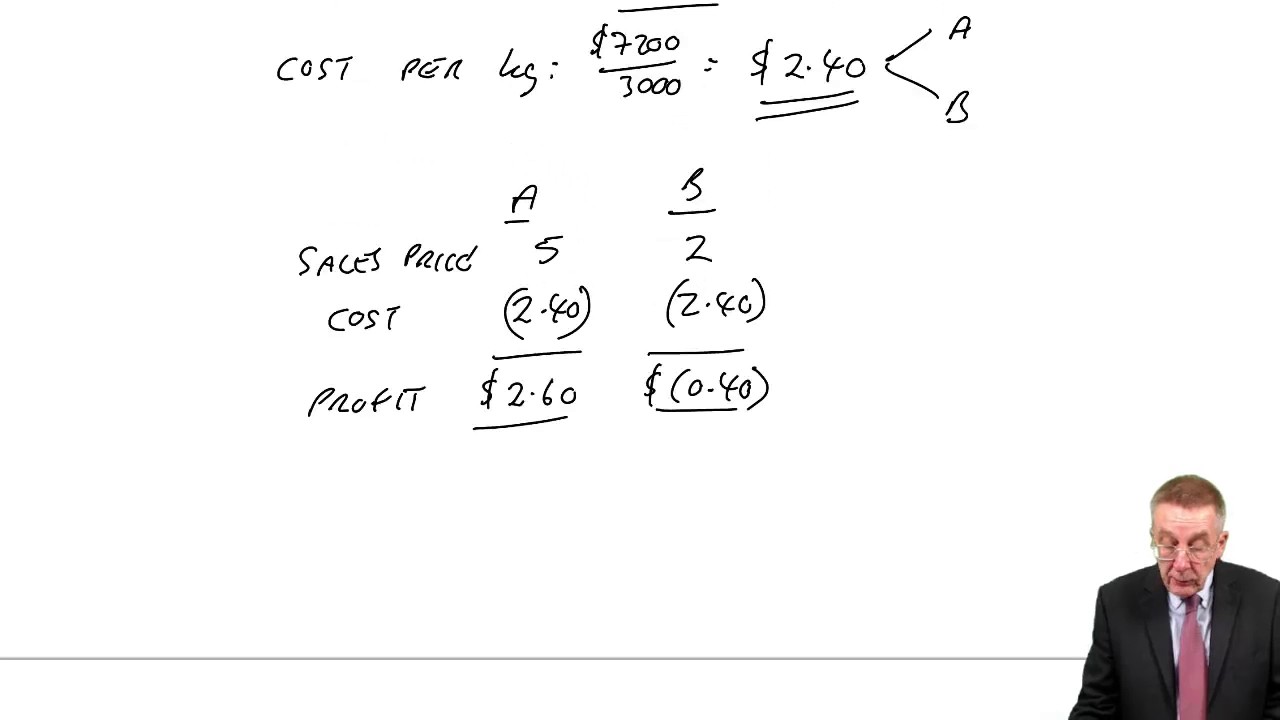 COST PER kg: $7200/3000 = $2.40 A
B
A B
SALES PRICE 5 2
COST (2.40) (2.40)
PROFIT $2.60 $(0.40)